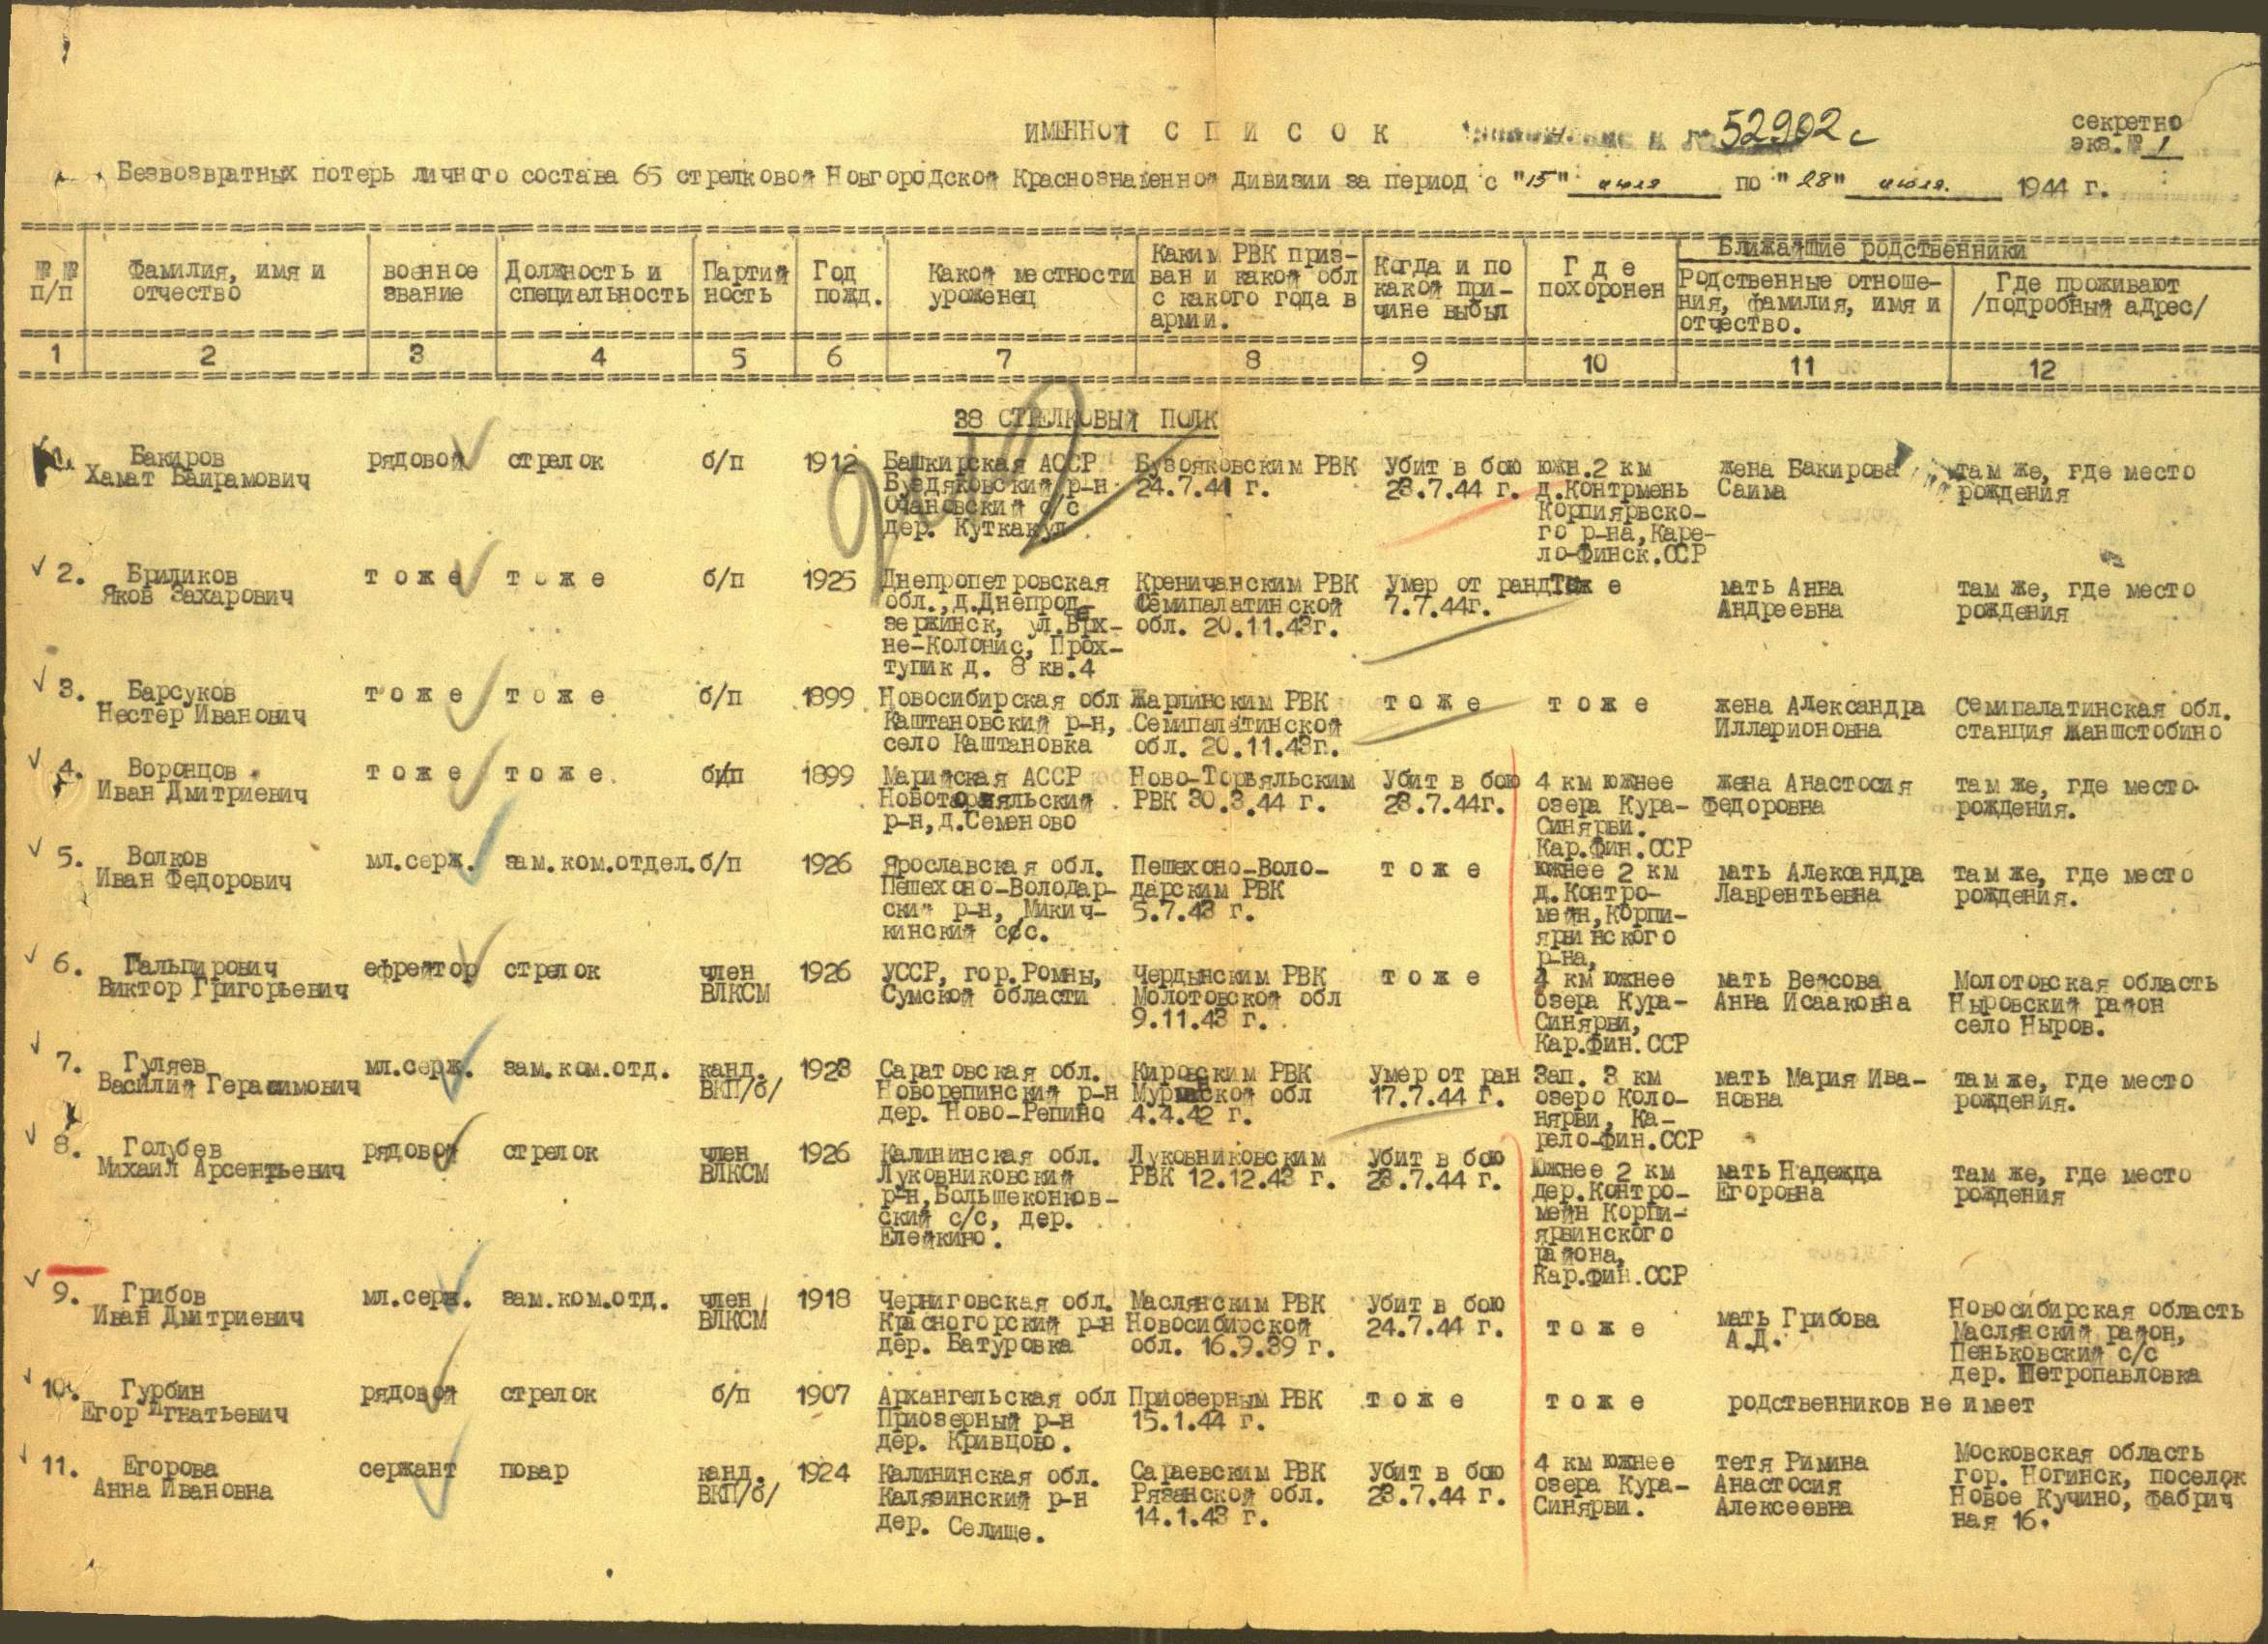 ИМЕННОЙ С П И С О К
52902с
секретно
экз.№ 1
Безвозвратных потерь личного состава 65 стрелковой Новгородской Краснознаменной дивизии за период с "15" июля по "28" июля. 1944 г.
№ №
п/п
Фамилия, имя и
отчество
военное
звание
Должность и
специальность
Партий
ность
Год
рожд.
Какой местности
уроженец
Каким РВК приз-
ван и какой обл
с какого года в
армии.
Когда и по
какой при-
чине выбыл
Г д е
похоронен
Ближайшие родственники
Родственные отноше-
ния, фамилия, имя и
отчество.
Где проживают
/подробный адрес/
1 2 3 4 5 6 7 8 9 10 11 12
38 СТРЕЛКОВЫЙ ПОЛК
Бакиров
Хамат Баирамович
рядовой
стрелок
б/п
1912
Башкирская АССР
Буздяковский р-н
Очановский с/с
дер. Куткакул
Бузояковским РВК
24.7.41 г.
Убит в бою
23.7.44 г.
южн.2 км
д.Контрмень
Корпиярвско-
го р-на,Каре-
ло-Финск.ССР
жена Бакирова
Саима
там же, где место
рождения
2. Бриликов
Яков Захарович
т о ж е
т о ж е
б/п
1925
Днепропетровская
обл.,д.Днепрод-
зержинск, ул.Врх-
не-Колонис, Прох-
тупик д. 8 кв.4
Креничанским РВК
Семипалатинской
обл. 20.11.43г.
Умер от ран
7.7.44г.
мать Анна
Андреевна
там же, где место
рождения
3. Барсуков
Нестер Иванович
т о ж е
т о ж е
б/п
1899
Новосибирская обл
Каштановский р-н,
село Каштановка
Жарминским РВК
Семипалатинской
обл. 20.11.43г.
т о ж е
т о ж е
жена Александра
Илларионовна
Семипалатинская обл.
станция Жаншстобино
4. Воронцов
Иван Дмитриевич
т о ж е
т о ж е
б/п
1899
Марийская АССР
Новоторъяльский
р-н,д.Семеново
Ново-Торъяльским
РВК 30.3.44 г.
Убит в бою
23.7.44г.
4 км южнее
озера Кура-
Синярви.
Кар.Фин.ССР
жена Анастосия
Федоровна
там же, где место
рождения.
5. Волков
Иван Федорович
мл.серж.
зам.ком.отдел.
б/п
1926
Ярославская обл.
Пешехоно-Володар-
ский р-н, Микич-
кинский с/с.
Пешехоно-Воло-
дарским РВК
5.7.43 г.
т о ж е
южнее 2 км
д.Контро-
мейн,Корпи-
ярвинского
р-на,
мать Александра
Лаврентьевна
там же, где место
рождения.
6. Гальпирович
Виктор Григорьевич
ефрейтор
стрелок
член
ВЛКСМ
1926
УССР, гор.Ромны,
Сумской области
Чердынским РВК
Молотовской обл
9.11.43 г.
т о ж е
4 км южнее
озера Кура-
Синярви,
Кар.Фин.ССР
мать Веясова
Анна Исааковна
Молотовская область
Ныровский район
село Ныров.
7. Гуляев
Василий Герасимович
мл.серж.
зам.ком.отд.
канд.
ВКП/б/
1923
Саратовская обл.
Новорепинский р-н
дер. Ново-Репино
Кировским РВК
Мурманской обл
4.4.42 г.
Умер от ран
17.7.44 г.
Зап. 3 км
озеро Коло-
нярви, Ка-
рело-фин.ССР
мать Мария Ива-
новна
там же, где место
рождения.
8. Голубев
Михаил Арсентьевич
рядовой
стрелок
член
ВЛКСМ
1926
Калининская обл.
Луковниковский
р-н,Большеконков-
ский с/с, дер.
Елейкино.
Луковниковским
РВК 12.12.43 г.
Убит в бою
23.7.44 г.
Южнее 2 км
дер.Контро-
мейн Корпи-
ярвинского
района,
Кар.фин.ССР
мать Надежда
Егоровна
там же, где место
рождения
9. Грибов
Иван Дмитриевич
мл.серж.
зам.ком.отд.
член
ВЛКСМ
1918
Черниговская обл.
Красногорский р-н
дер. Батуровка
Маслянским РВК
Новосибирской
обл. 16.9.39 г.
Убит в бою
24.7.44 г.
т о ж е
мать Грибова
А.Д.
Новосибирская область
Маслянский район,
Пеньковский с/с
дер. Петропавловка
10. Гурбин
Егор Игнатьевич
рядовой
стрелок
б/п
1907
Архангельская обл
Приозерный р-н
дер. Кривцово.
Приозерным РВК
15.1.44 г.
т о ж е
т о ж е
родственников не имеет
11. Егорова
Анна Ивановна
сержант
повар
канд.
ВКП/б/
1924
Калининская обл.
Калязинский р-н
дер. Селище.
Сараевским РВК
Рязанской обл.
14.1.43 г.
Убит в бою
23.7.44 г.
4 км южнее
озера Кура-
Синярви.
тетя Римина
Анастосия
Алексеевна
Московская область
гор. Ногинск, поселок
Новое Кучино, фабрич
ная 16.